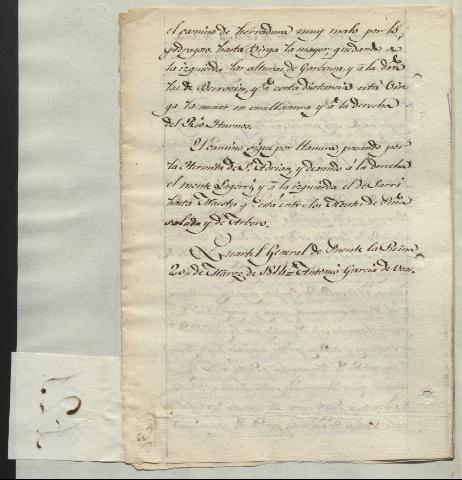 el camino de herradura muy malo por lo
pedregoso, hasta Virga la mayor, quedando a
la izquierda las alturas de Gastiain, y a la dra
las de y a corta distancia esta Vir-
ga la menor en una llanura y a la derecha
del Rio
El camino sigue por llanura, pasando por
la Hermita de S. Adrian, y dexando á la derecha
el monte y a la izquierda el de
hasta Maestu q.e está entre los Montes de
y de Arboro.
Quartel General de Puente la Reina
20 de Marzo de 1814 = Antonio Garcia de
157
3